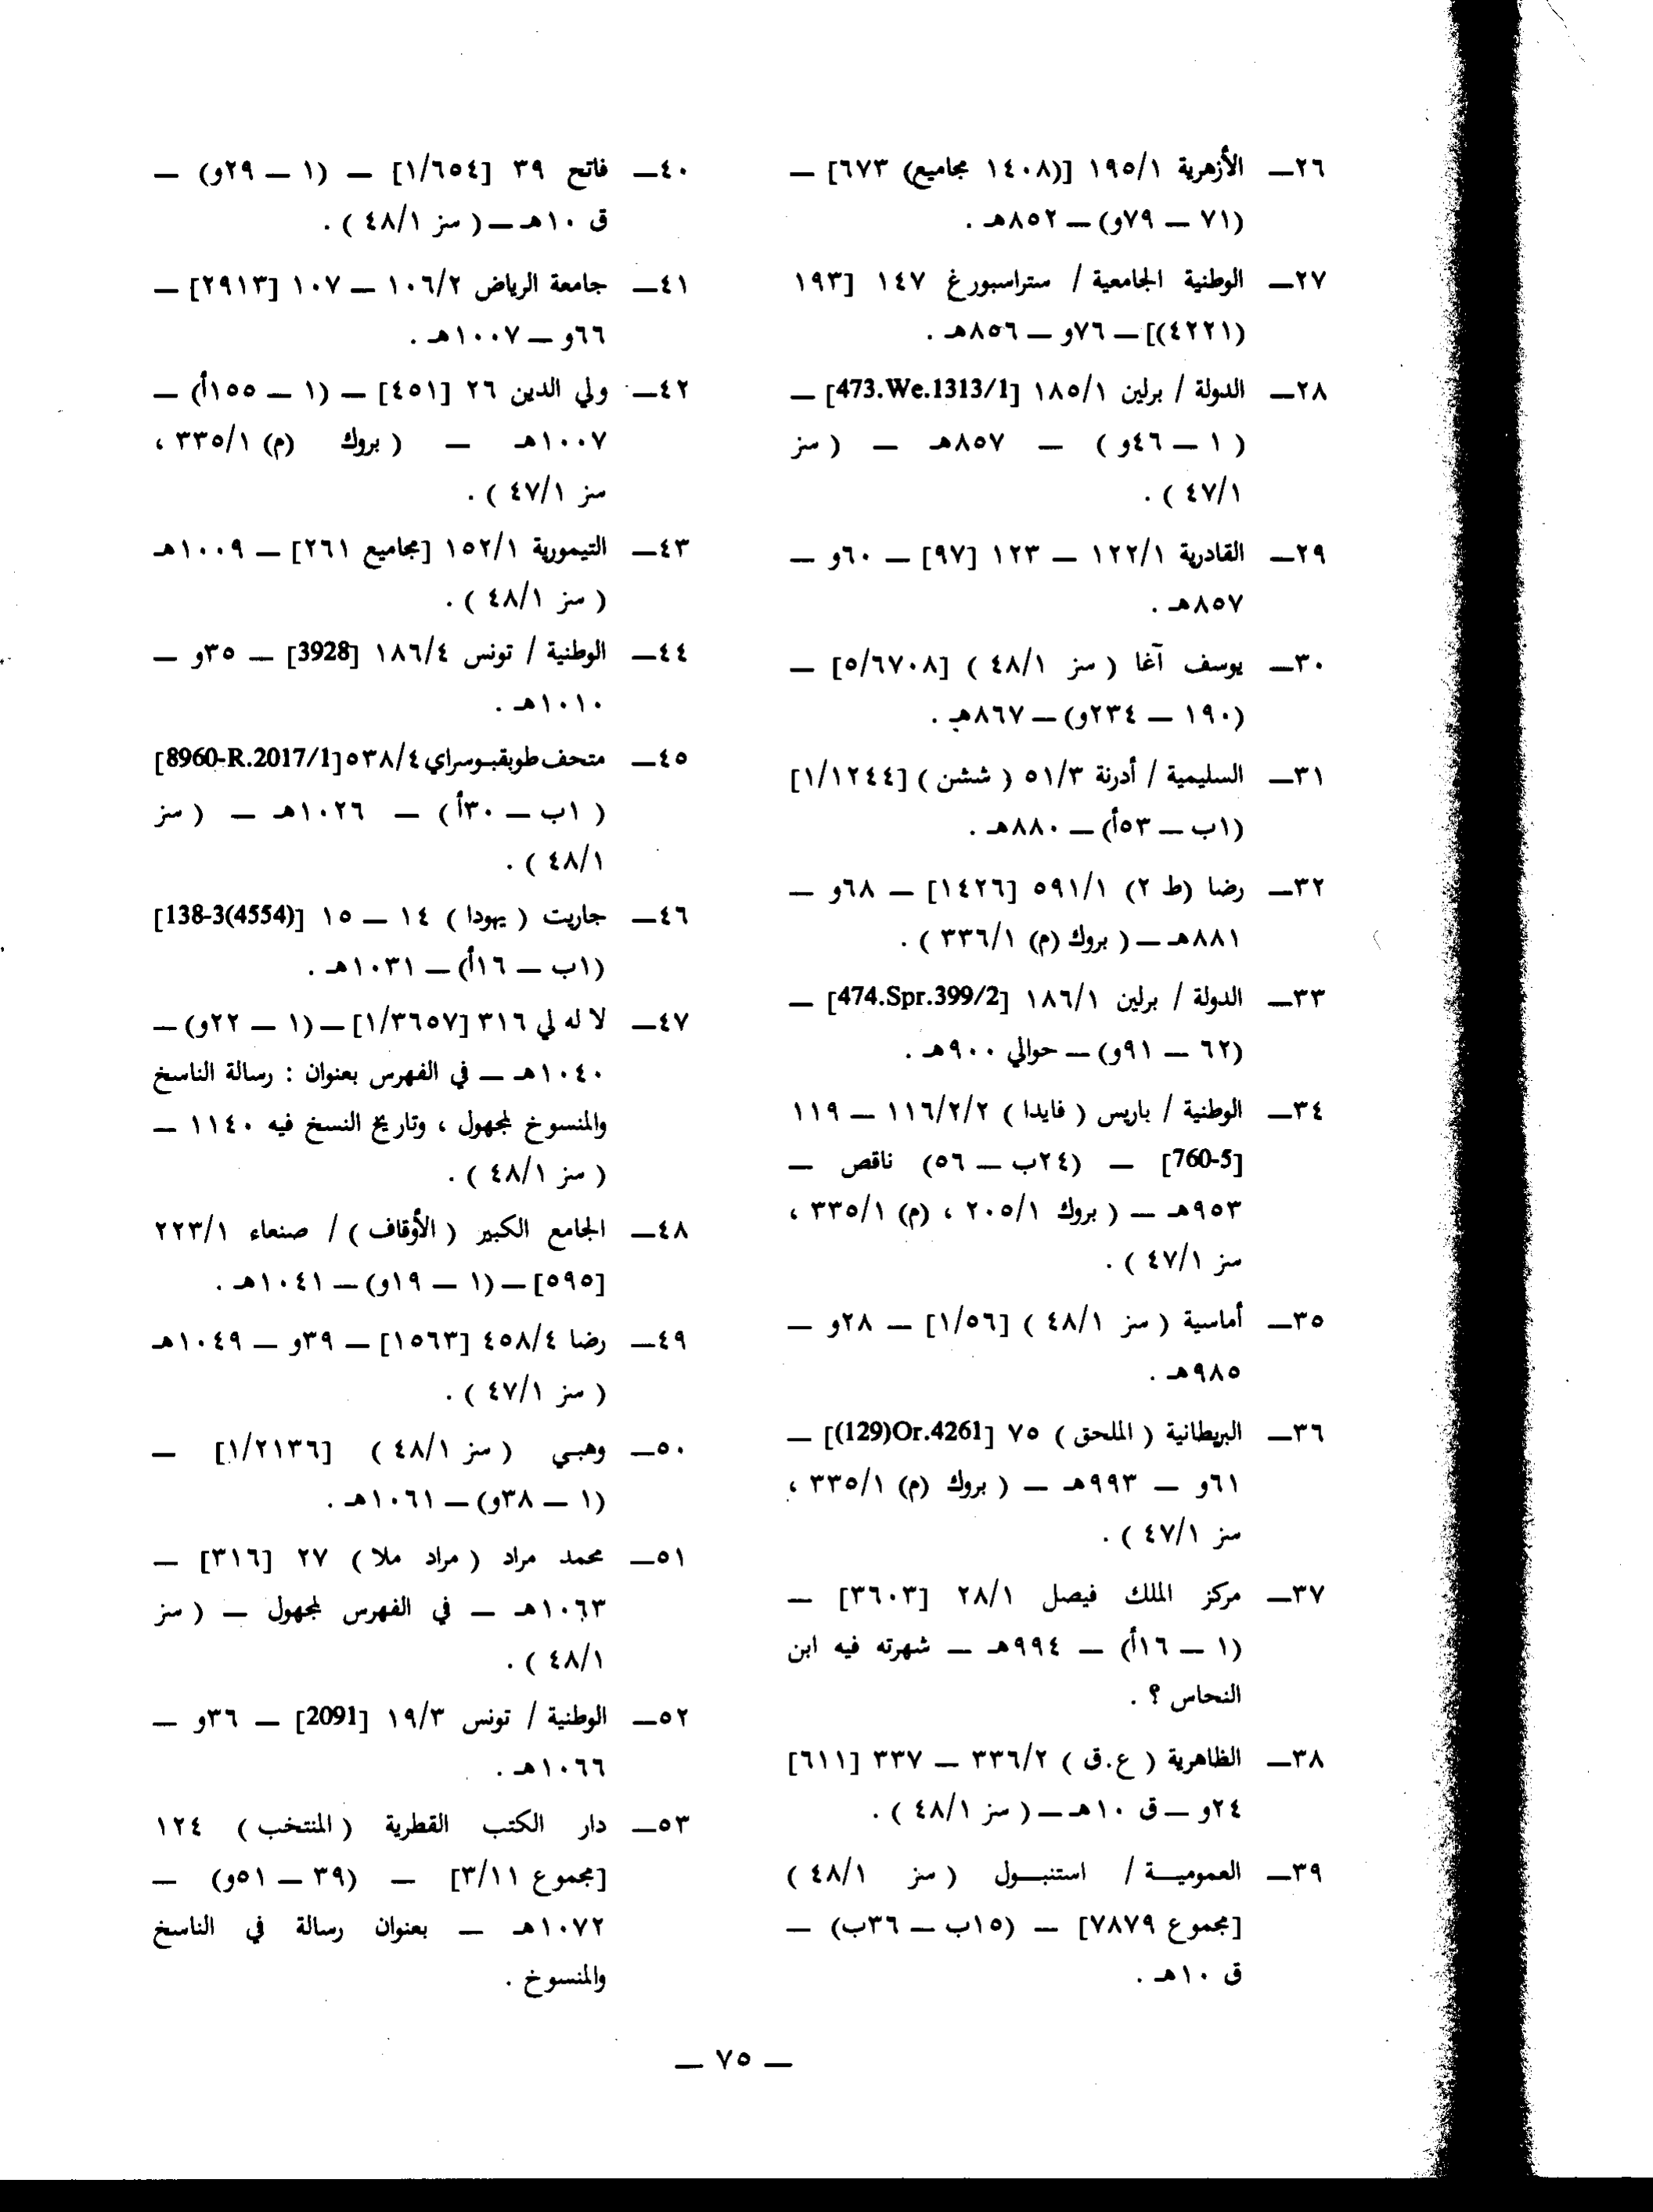 ٢٦— الأزهرية ١٩٥/١ [(١٤٠٨ مجاميع) ٦٧٣] —
(٧١ — ٧٩و) — ٨٥٢هـ .
٢٧— الوطنية الجامعية / ستراسبورغ ١٤٧ [١٩٣
(٤٢٢١)] — ٧٦و — ٨٥٦هـ .
٢٨— الدولة / برلين ١٨٥/١ [473.We.1313/1] —
( ١ — ٤٦و ) — ٨٥٧هـ — ( سز
٤٧/١ ) .
٢٩— القادرية ١٢٢/١ — ١٢٣ [٩٧] — ٦٠و —
٨٥٧هـ .
٣٠— يوسف آغا ( سز ٤٨/١ ) [٥/٦٧٠٨] —
(١٩٠ — ٢٣٤و) — ٨٦٧هـ .
٣١— السليمية / أدرنة ٥١/٣ ( ششن ) [١/١٢٤٤]
(١ب — ٥٣أ) — ٨٨٠هـ .
٣٢— رضا (ط ٢) ٥٩١/١ [١٤٢٦] — ٦٨و —
٨٨١هـ — ( بروك (م) ٣٣٦/١ ) .
٣٣— الدولة / برلين ١٨٦/١ [474.Spr.399/2] —
(٦٢ — ٩١و) — حوالي ٩٠٠هـ .
٣٤— الوطنية / باريس ( فايدا ) ١١٦/٢/٢ — ١١٩
[760-5] — (٢٤ب — ٥٦) ناقص —
٩٥٣هـ — ( بروك ٢٠٥/١ ، (م) ٣٣٥/١ ،
سز ٤٧/١ ) .
٣٥— أماسية ( سز ٤٨/١ ) [١/٥٦] — ٢٨و —
٩٨٥هـ .
٣٦— البريطانية ( الملحق ) ٧٥ [(129)Or.4261] —
٦١و — ٩٩٣هـ — ( بروك (م) ٣٣٥/١ ،
سز ٤٧/١ ) .
٣٧— مركز الملك فيصل ٢٨/١ [٣٦٠٣] —
(١ — ١٦أ) — ٩٩٤هـ — شهرته فيه ابن
النحاس ؟ .
٣٨— الظاهرية ( ع.ق ) ٣٣٦/٢ — ٣٣٧ [٦١١]
٢٤و — ق ١٠هـ — ( سز ٤٨/١ ) .
٣٩— العموميـة / استنبـول ( سز ٤٨/١ )
[مجموع ٧٨٧٩] — (١٥ب — ٣٦ب) —
ق ١٠هـ .
٤٠— فاتح ٣٩ [١/٦٥٤] — (١ — ٢٩و) —
ق ١٠هـ — ( سز ٤٨/١ ) .
٤١— جامعة الرياض ١٠٦/٢ — ١٠٧ [٢٩١٣] —
٦٦و — ١٠٠٧هـ .
٤٢— ولي الدين ٢٦ [٤٥١] — (١ — ١٥٥أ) —
١٠٠٧هـ — ( بروك (م) ٣٣٥/١ ،
سز ٤٧/١ ) .
٤٣— التيمورية ١٥٢/١ [مجاميع ٢٦١] — ١٠٠٩هـ
( سز ٤٨/١ ) .
٤٤— الوطنية / تونس ١٨٦/٤ [3928] — ٣٥و —
١٠١٠هـ .
٤٥— متحف طوبقبوسراي ٥٣٨/٤ [8960-R.2017/1]
( ١ب — ٣٠أ ) — ١٠٢٦هـ — ( سز
٤٨/١ ) .
٤٦— جاريت ( يهودا ) ١٤ — ١٥ [138-3(4554)]
(١ب — ١٦أ) — ١٠٣١هـ .
٤٧— لا له لي ٣١٦ [١/٣٦٥٧] — (١ — ٢٢و) —
١٠٤٠هـ — في الفهرس بعنوان : رسالة الناسخ
والمنسوخ لمجهول ، وتاريخ النسخ فيه ١١٤٠ —
( سز ٤٨/١ ) .
٤٨— الجامع الكبير ( الأوقاف ) / صنعاء ٢٢٣/١
[٥٩٥] — (١ — ١٩و) — ١٠٤١هـ .
٤٩— رضا ٤٥٨/٤ [١٥٦٣] — ٣٩و — ١٠٤٩هـ
( سز ٤٧/١ ) .
٥٠— وهبـي ( سز ٤٨/١ ) [١/٢١٣٦] —
(١ — ٣٨و) — ١٠٦١هـ .
٥١— محمد مراد ( مراد ملا ) ٢٧ [٣١٦] —
١٠٦٣هـ — في الفهرس لمجهول — ( سز
٤٨/١ ) .
٥٢— الوطنية / تونس ١٩/٣ [2091] — ٣٦و —
١٠٦٦هـ .
٥٣— دار الكتب القطرية ( المنتخب ) ١٢٤
[مجموع ٣/١١] — (٣٩ — ٥١و) —
١٠٧٢هـ — بعنوان رسالة في الناسخ
والمنسوخ .
— ٧٥ —